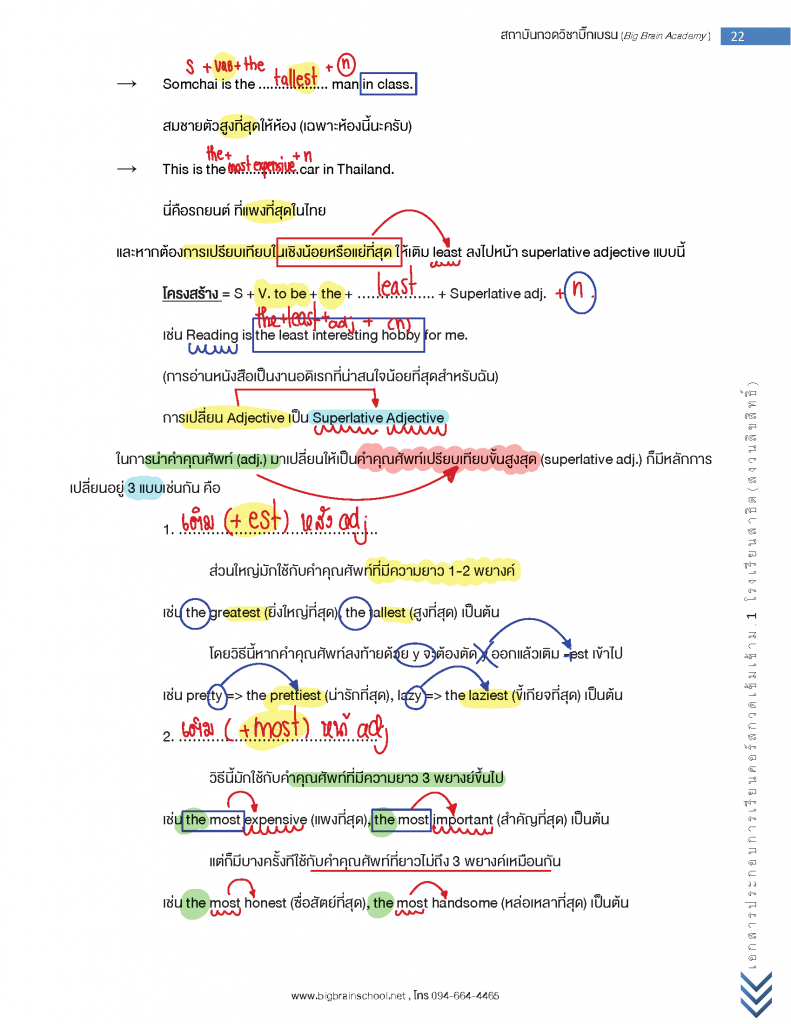 สถาบันกวดวิชาบิ๊กเบรน (Big Brain Academy) 22
S + verb + the + n
→ Somchai is the .......tallest.......... man in class.
สมชายตัวสูงที่สุดให้ห้อง (เฉพาะห้องนี้นะครับ)
the + + n
→ This is the most expensive car in Thailand.
นี่คือรถยนต์ ที่แพงที่สุดในไทย
และหากต้องการเปรียบเทียบในเชิงน้อยหรือแย่ที่สุด ให้เติม least ลงไปหน้า superlative adjective แบบนี้
โครงสร้าง = S + V. to be + the + ......least........... + Superlative adj. + n .
the + least + adj + (n)
เช่น Reading is the least interesting hobby for me.
(การอ่านหนังสือเป็นงานอดิเรกที่น่าสนใจน้อยที่สุดสำหรับฉัน)
การเปลี่ยน Adjective เป็น Superlative Adjective
ในการนำคำคุณศัพท์ (adj.) มาเปลี่ยนให้เป็นคำคุณศัพท์เปรียบเทียบขั้นสูงสุด (superlative adj.) ก็มีหลักการ
เปลี่ยนอยู่ 3 แบบเช่นกัน คือ
1. เติม (+ est) หลัง adj
ส่วนใหญ่มักใช้กับคำคุณศัพท์ที่มีความยาว 1-2 พยางค์
เช่น the greatest (ยิ่งใหญ่ที่สุด), the tallest (สูงที่สุด) เป็นต้น
โดยวิธีนี้หากคำคุณศัพท์ลงท้ายด้วย y จะต้องตัด y ออกแล้วเติม -est เข้าไป
เช่น pretty => the prettiest (น่ารักที่สุด), lazy => the laziest (ขี้เกียจที่สุด) เป็นต้น
2. เติม (+most) หน้า adj
วิธีนี้มักใช้กับคำคุณศัพท์ที่มีความยาว 3 พยางย์ขึ้นไป
เช่น the most expensive (แพงที่สุด), the most important (สำคัญที่สุด) เป็นต้น
แต่ก็มีบางครั้งที่ใช้กับคำคุณศัพท์ที่ยาวไม่ถึง 3 พยางค์เหมือนกัน
เช่น the most honest (ซื่อสัตย์ที่สุด), the most handsome (หล่อเหลาที่สุด) เป็นต้น
เอกสารประกอบการเรียนคอร์สกวดเข้มเข้าม.1 โรงเรียนสาธิต(สงวนลิขสิทธิ์)
www.bigbrainschool.net , โทร 094-664-4465